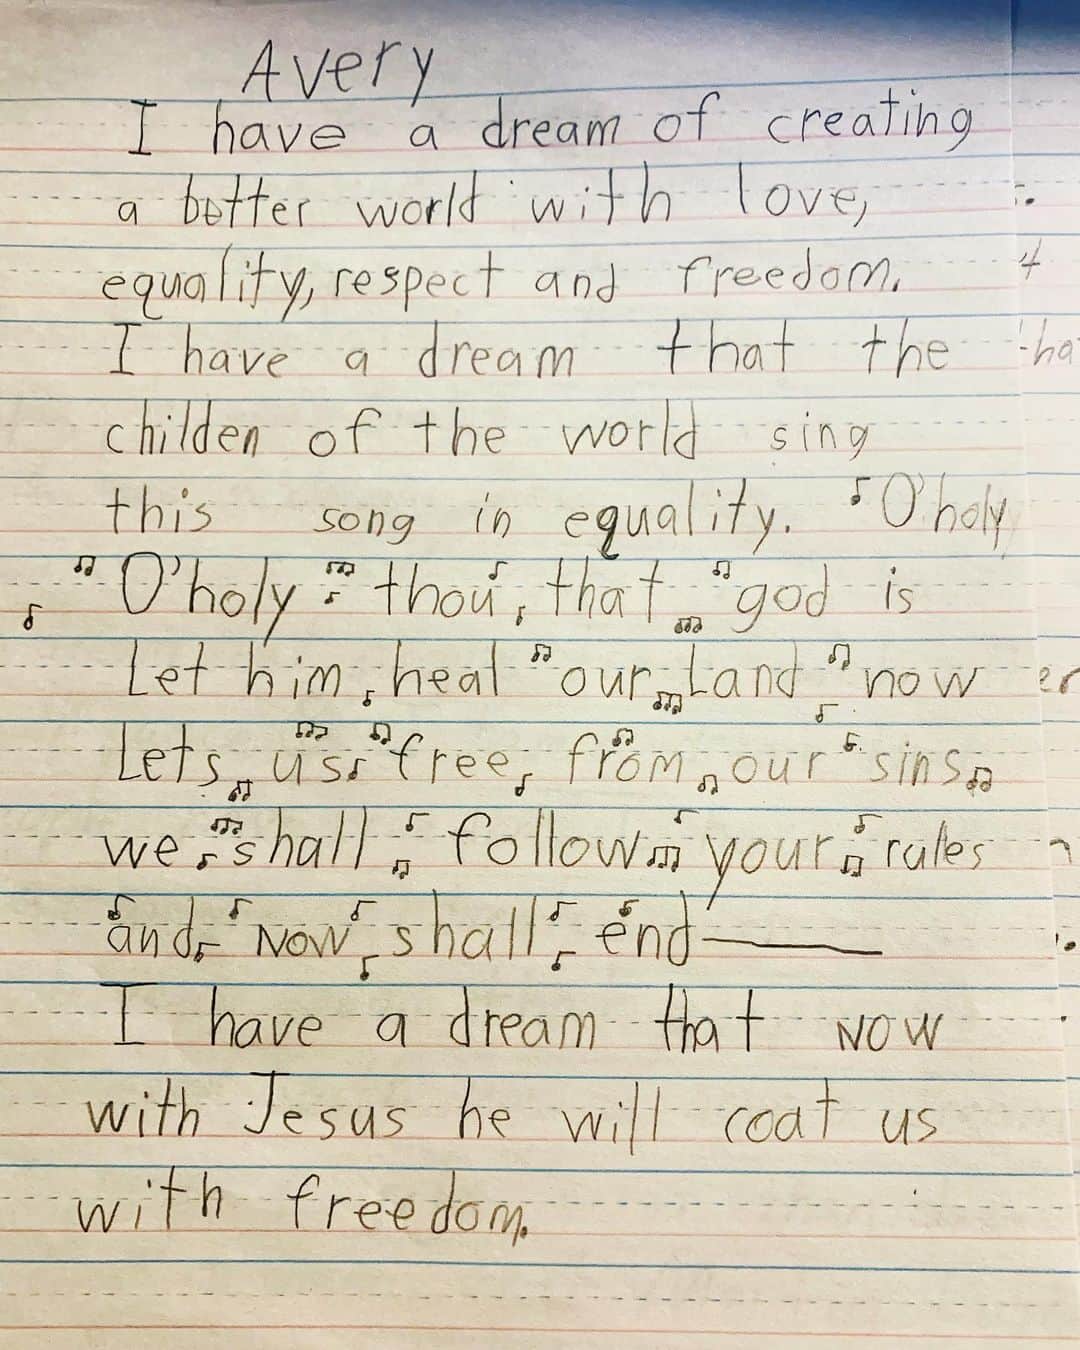 Avery
I have a dream of creating
a better world with love,
equality, respect and freedom.
I have a dream that the
childen of the world sing
this song in equality. ♪O'holy
♫ O'holy ♫ ♪ thou ♪ ♪ that ♫ ♫ god is
♪ Let him ♪ heal ♫ our ♫ Land ♫ now
Lets ♫ us ♫ ♪ ♫ free ♪ from ♫ ♫ our ♪ sins ♫
we ♫ ♪ shall ♪ ♫ follow ♫ ♪ your ♪ ♫ rules
♪ and ♪ ♪ NOW ♪ ♪ shall ♪ ♪ end ♪
I have a dream that NOW
with Jesus he will coat us
with freedom.